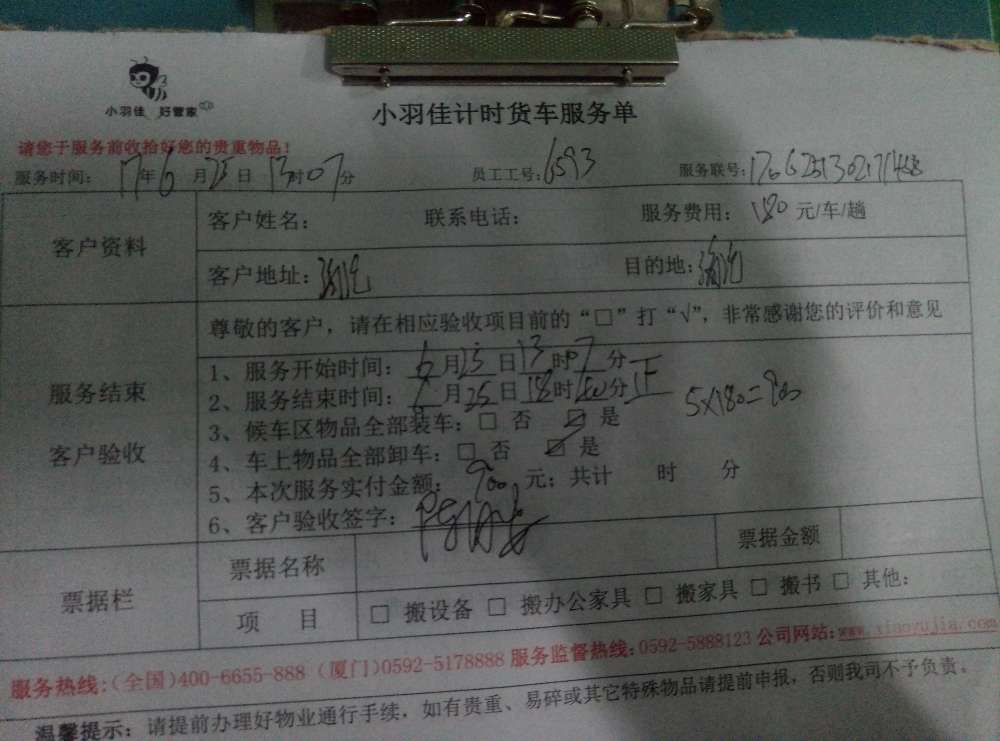 小羽佳 好管家
小羽佳计时货车服务单
请您于服务前收拾好您的贵重物品!
服务时间: 17年6月25日13时07分 员工工号:6593 服务联号:
客户资料
客户姓名: 联系电话: 服务费用: 180元/车/趟
客户地址: 目的地:
服务结束
客户验收
尊敬的客户，请在相应验收项目前的“□”打“√”，非常感谢您的评价和意见
1、服务开始时间: 6月25日13时07分
2、服务结束时间: 月25日18时分 正
5×180=900
3、候车区物品全部装车: □ 否 ☑ 是
4、车上物品全部卸车: □ 否 ☑ 是
5、本次服务实付金额: 900元; 共计 时 分
6、客户验收签字:
票据栏
票据名称 票据金额
项 目 □ 搬设备 □ 搬办公家具 □ 搬家具 □ 搬书 □ 其他:
服务热线:(全国)400-6655-888 (厦门)0592-5178888 服务监督热线:0592-5888123 公司网站:www.xiaoyujia.com
温馨提示: 请提前办理好物业通行手续，如有贵重、易碎或其它特殊物品请提前申报，否则我司不予负责。